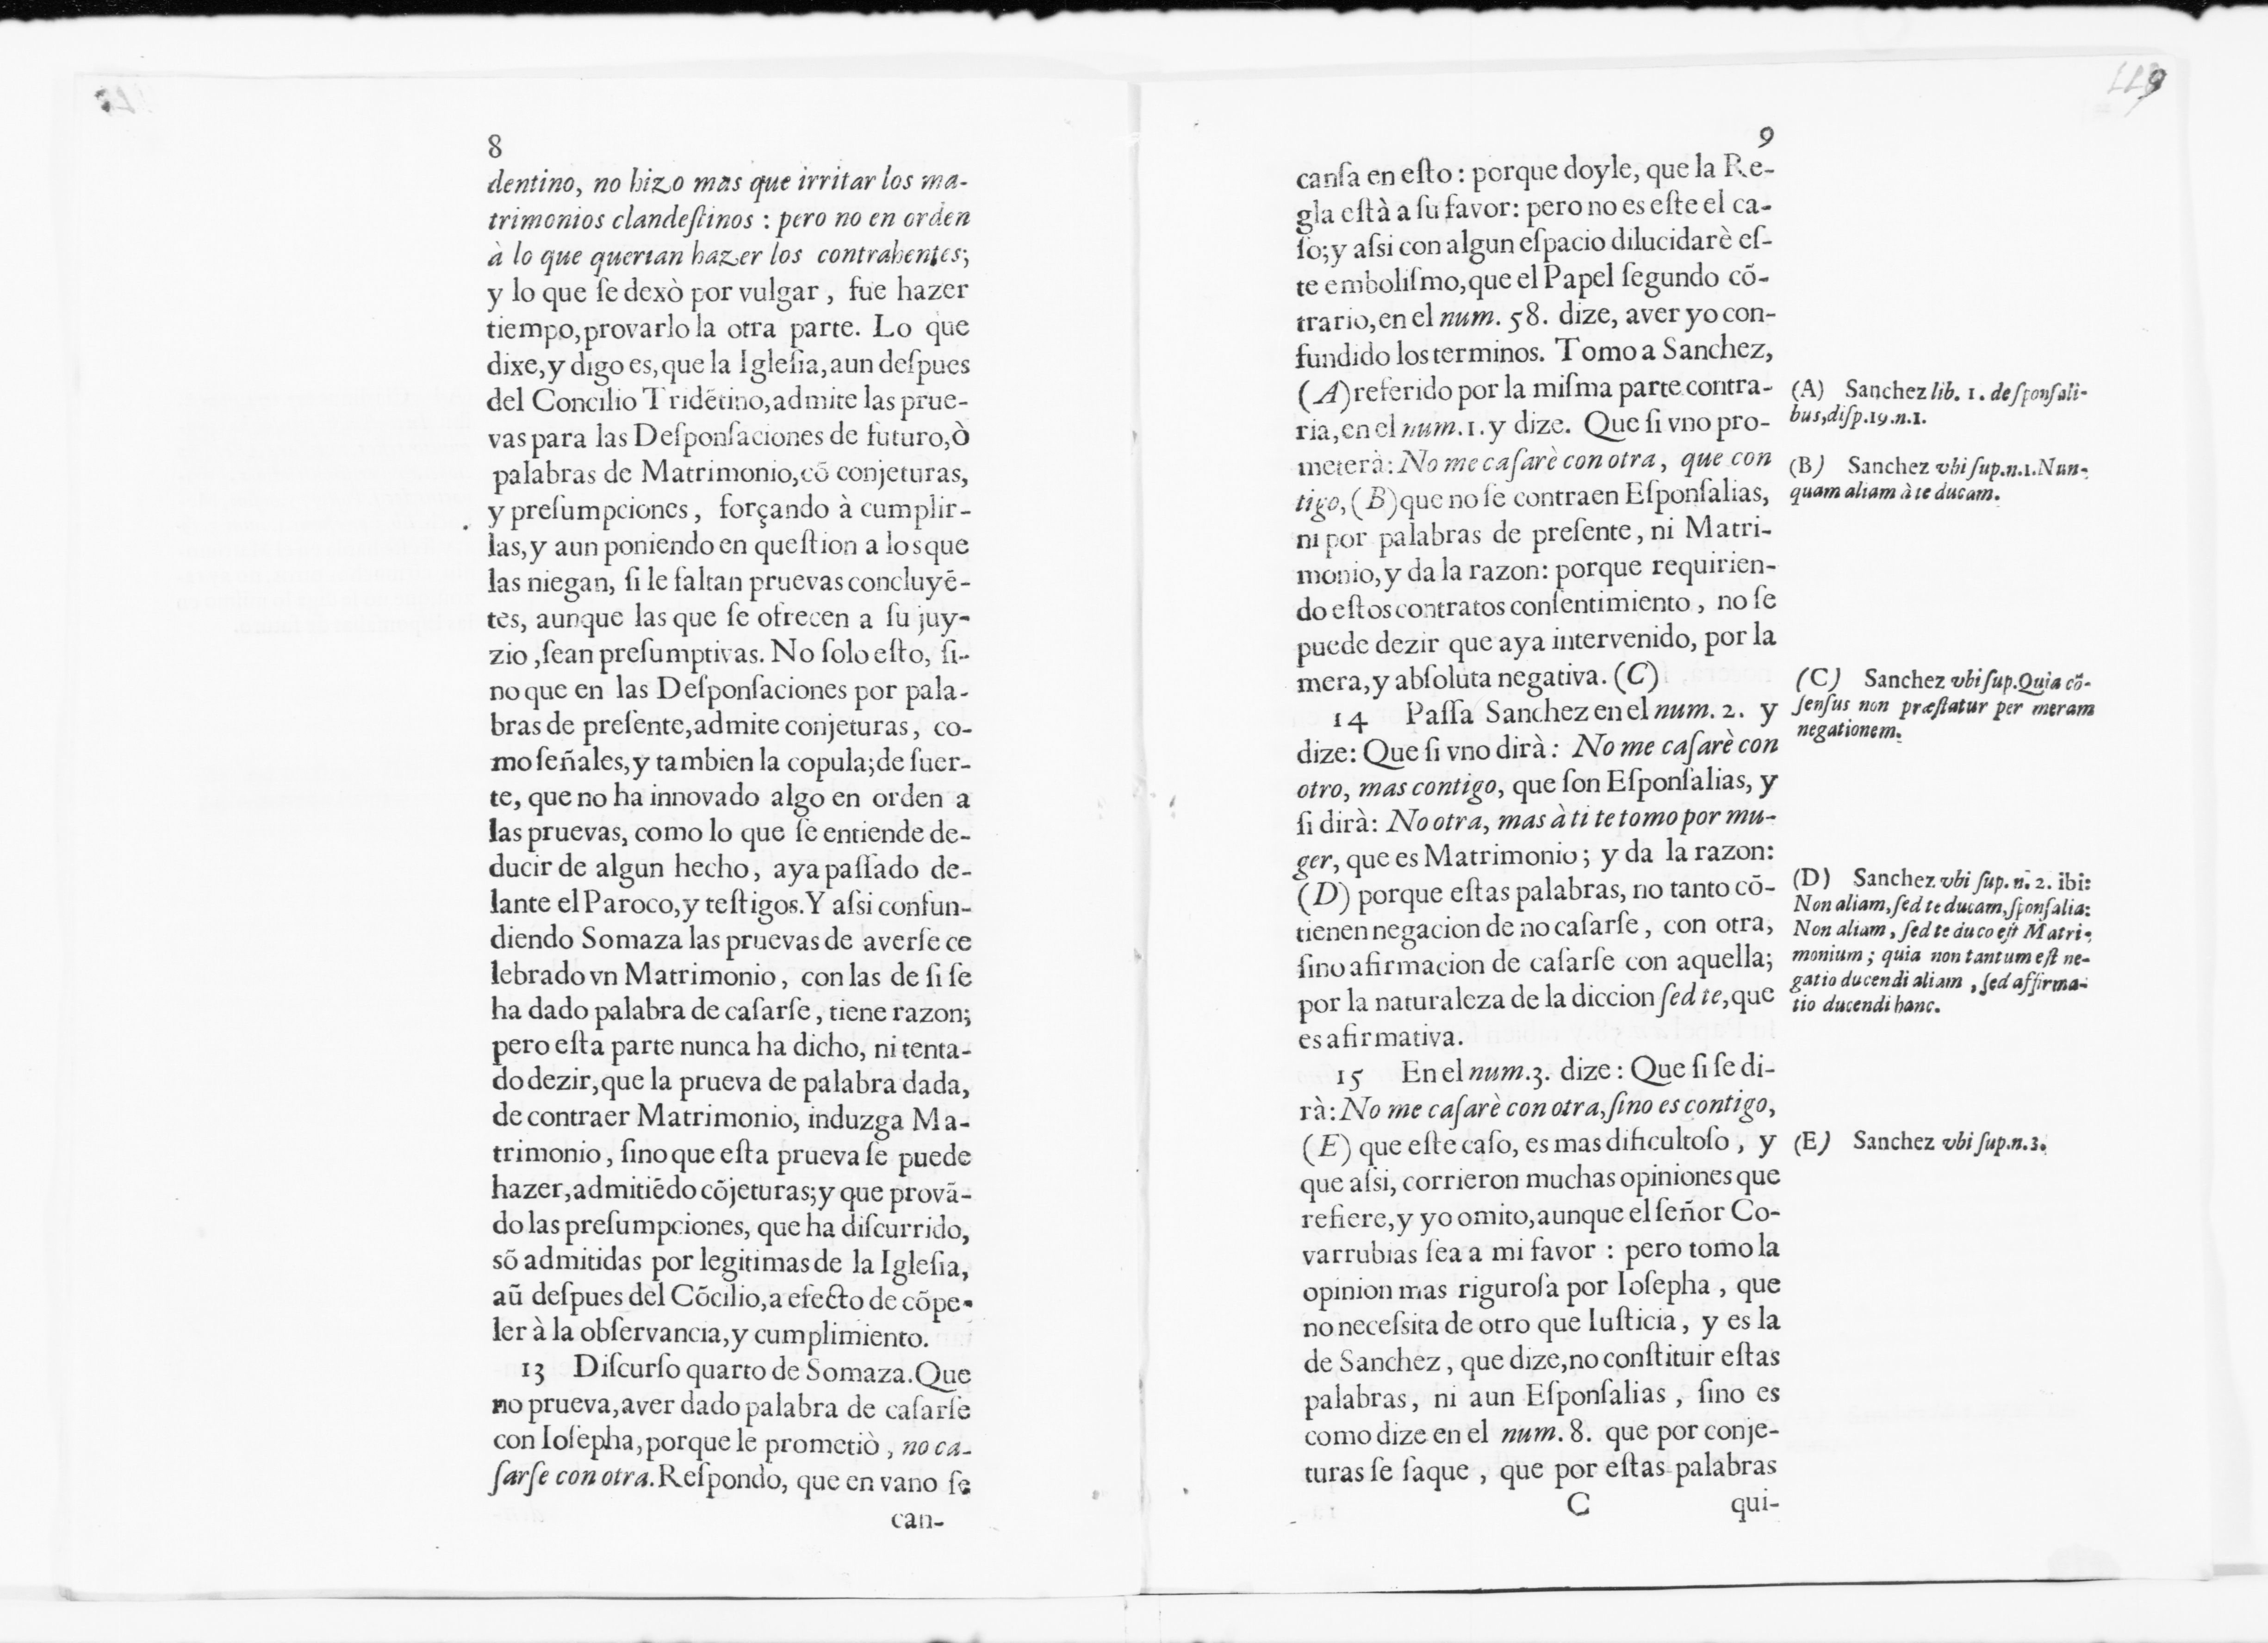 8
dentino, no hizo mas que irritar los ma-
trimonios clandeſtinos : pero no en orden
à lo que querian hazer los contrahentes;
y lo que ſe dexò por vulgar , fue hazer
tiempo, provarlo la otra parte. Lo que
dixe, y digo es, que la Igleſia, aun deſpues
del Concilio Tridētino, admite las prue-
vas para las Deſponſaciones de futuro, ò
palabras de Matrimonio, cō conjeturas,
y preſumpciones , forçando à cumplir-
las, y aun poniendo en queſtion a los que
las niegan, ſi le faltan pruevas concluyē-
tes, aunque las que ſe ofrecen a ſu juy-
zio , ſean preſumptivas. No ſolo eſto, ſi-
no que en las Deſponſaciones por pala-
bras de preſente, admite conjeturas , co-
mo ſeñales, y tambien la copula; de ſuer-
te, que no ha innovado algo en orden a
las pruevas, como lo que ſe entiende de-
ducir de algun hecho, aya paſſado de-
lante el Paroco, y teſtigos. Y aſsi confun-
diendo Somaza las pruevas de averſe ce
lebrado vn Matrimonio , con las de ſi ſe
ha dado palabra de caſarſe , tiene razon;
pero eſta parte nunca ha dicho, ni tenta-
do dezir, que la prueva de palabra dada,
de contraer Matrimonio, induzga Ma-
trimonio , ſino que eſta prueva ſe puede
hazer, admitiēdo cōjeturas; y que provā-
do las preſumpciones, que ha diſcurrido,
sō admitidas por legitimas de la Igleſia,
aū deſpues del Cōcilio, a efecto de cōpe-
ler à la obſervancia, y cumplimiento.
13 Diſcurſo quarto de Somaza. Que
no prueva, aver dado palabra de caſarſe
con Ioſepha, porque le prometiò , no ca-
ſarſe con otra. Reſpondo, que en vano ſe
can-
9
canſa en eſto : porque doyle, que la Re-
gla eſtà a ſu favor: pero no es eſte el ca-
ſo; y aſsi con algun eſpacio dilucidarè eſ-
te emboliſmo, que el Papel ſegundo cō-
trario, en el num. 58. dize, aver yo con-
fundido los terminos. Tomo a Sanchez,
(A) referido por la miſma parte contra-
ria, en el num. 1. y dize. Que ſi vno pro-
meterà: No me caſarè con otra, que con
tigo, (B) que no ſe contraen Eſponſalias,
ni por palabras de preſente, ni Matri-
monio, y da la razon: porque requirien-
do eſtos contratos conſentimiento , no ſe
puede dezir que aya intervenido, por la
mera, y abſoluta negativa. (C)
14 Paſſa Sanchez en el num. 2. y
dize: Que ſi vno dirà: No me caſarè con
otro, mas contigo, que ſon Eſponſalias, y
ſi dirà: No otra, mas à ti te tomo por mu-
ger, que es Matrimonio; y da la razon:
(D) porque eſtas palabras, no tanto cō-
tienen negacion de no caſarſe , con otra,
ſino afirmacion de caſarſe con aquella;
por la naturaleza de la diccion ſed te, que
es afirmativa.
15 En el num. 3. dize : Que ſi ſe di-
rà: No me caſarè con otra, ſino es contigo,
(E) que eſte caſo, es mas dificultoſo , y
que aſsi, corrieron muchas opiniones que
refiere, y yo omito, aunque el ſeñor Co-
varrubias ſea a mi favor : pero tomo la
opinion mas riguroſa por Ioſepha , que
no neceſsita de otro que Iuſticia , y es la
de Sanchez , que dize, no conſtituir eſtas
palabras, ni aun Eſponſalias , ſino es
como dize en el num. 8. que por conje-
turas ſe ſaque , que por eſtas palabras
C qui-
(A) Sanchez lib. 1. de ſponſali-
bus, diſp. 19. n. 1.
(B) Sanchez vbi ſup. n. 1. Nun-
quam aliam à te ducam.
(C) Sanchez vbi ſup. Quia cō-
ſenſus non præſtatur per meram
negationem.
(D) Sanchez vbi ſup. n. 2. ibi:
Non aliam, ſed te ducam, ſponſalia:
Non aliam , ſed te duco eſt Matri-
monium ; quia non tantum eſt ne-
gatio ducendi aliam , ſed affirma-
tio ducendi hanc.
(E) Sanchez vbi ſup. n. 3.